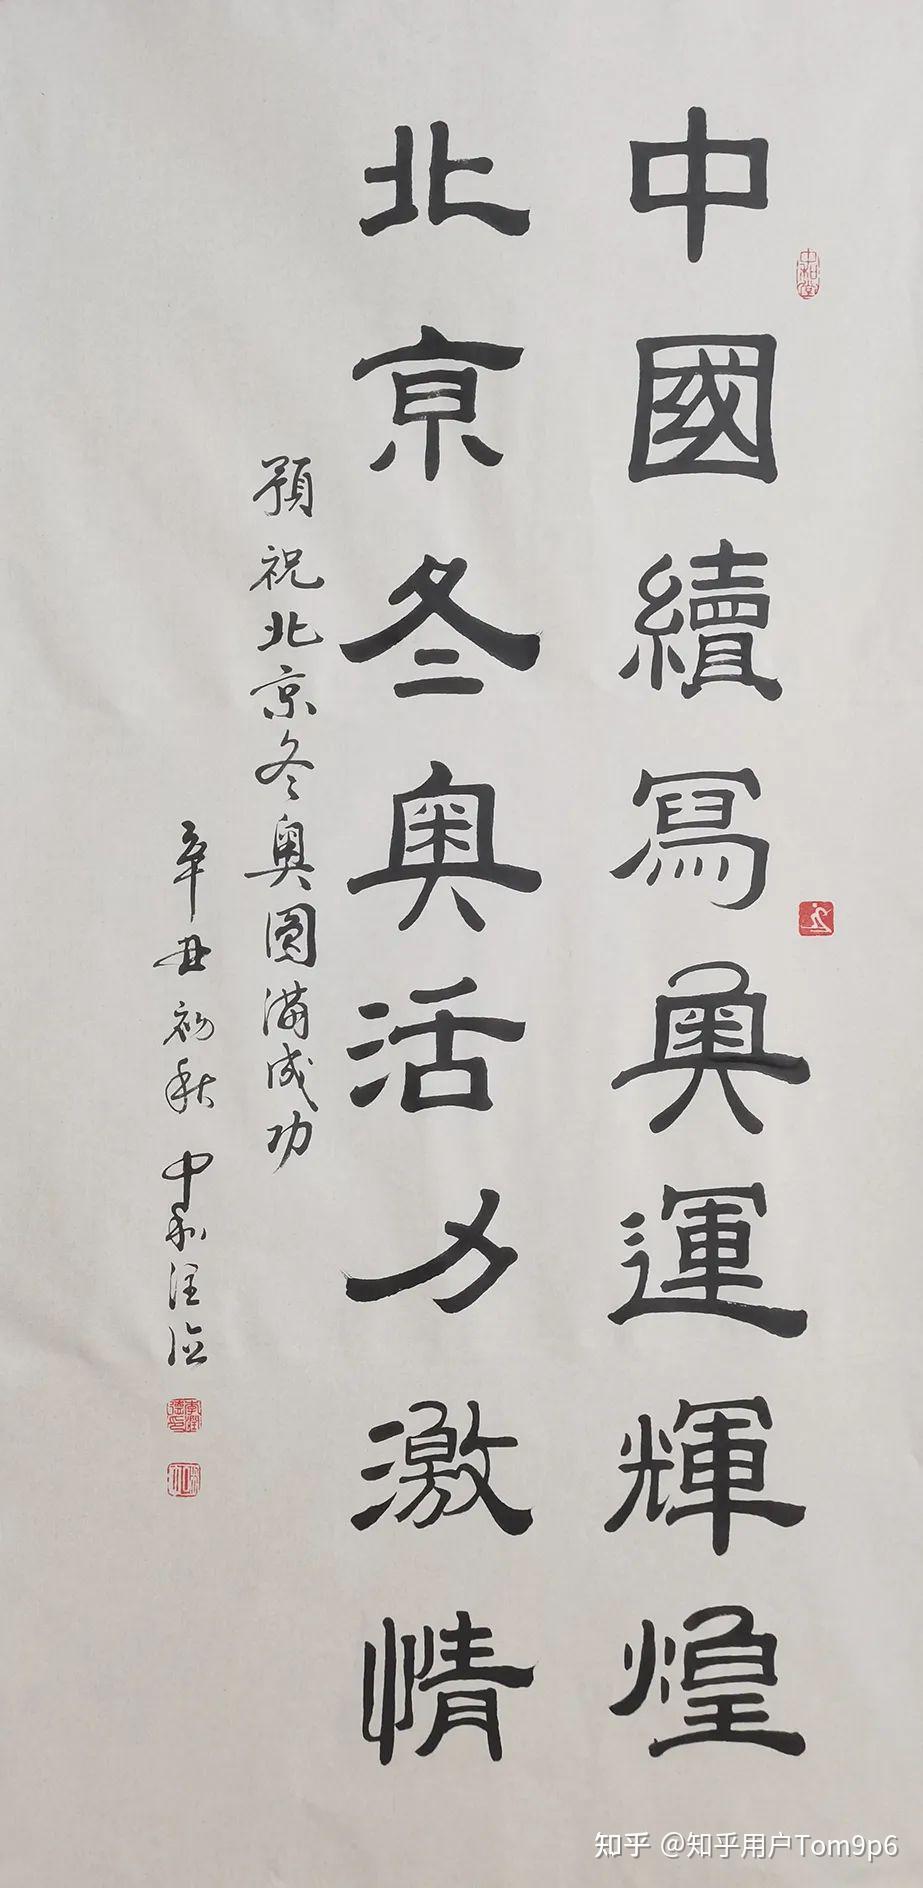 中國續寫奧運輝煌
北京冬奧活力激情
預祝北京冬奧圓滿成功
辛丑初秋中和
中和堂
知乎 @知乎用户Tom9p6